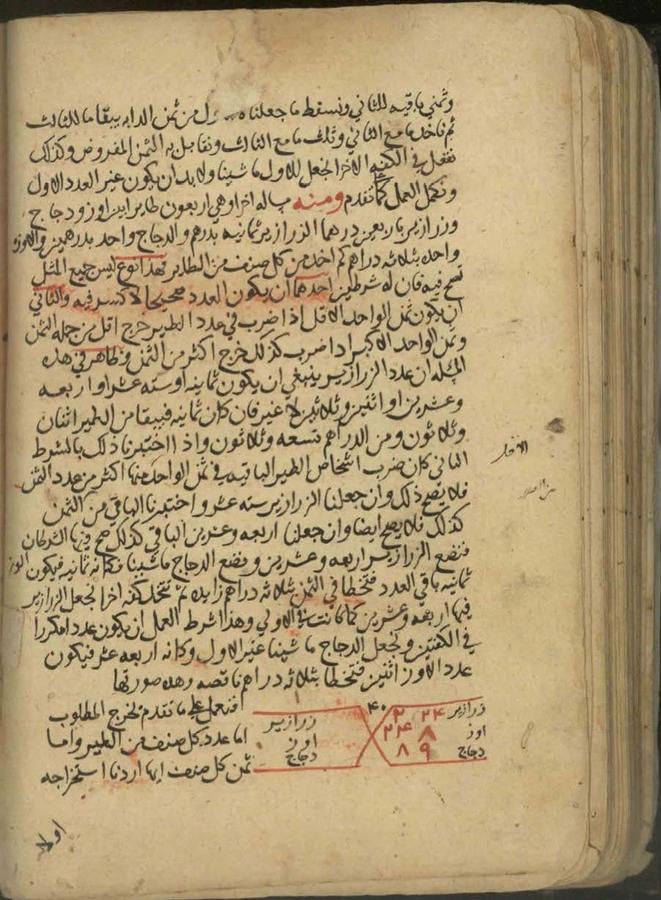 وثمنى باقيه للثاني ونسقط ما جعلناه للاول من ثمن الدابه يبقا ما للثالث
ثم ناخذ ما مع الثاني وثلث ما مع الثالث ونقابل به الثمن المفروض وكذلك
نفعل في الكفه الاخرا نجعل للاول ما شينا ولابد ان يكون غير العدد الاول
ونكمل العمل كما تقدم ومنه مساله اخرا وهي اربعون طاير ابين اوز ودجاج
وزرازير باربعين درهما الزرازير ثمانيه بدرهم والدجاج واحد بدرهمين والاوز
واحده بثلاثه دراهم كم اخذ من كل صنف من الطاير فهذا نوع ليس جميع المثل
تصح فيه فان له شرطين احدهما ان يكون العدد صحيحا لا كسر فيه والثاني
ان يكون ثمن الواحد الاقل اذا ضرب في عدد الطير خرج اقل من جمله الثمن
وثمن الواحد الاكبر اذا ضرب كذلك خرج اكثر من الثمن وظاهر في هذه
المثله ان عدد الزرازير ينبغي ان يكون ثمانيه او سته عشر او اربعه
وعشرين او اثنين وثلاثين لا غير فان كان ثمانيه فيبقا من الطير اثنان
وثلاثون ومن الدراهم تسعه وثلاثون واذا اختبرنا ذلك بالشرط
الثاني كان ضرب اشخاص الطير الباقيه في ثمن الواحد منها اكثر من عدد الثمن
فلا يصح ذلك وان جعلنا الزرازير سته عشر واختبرنا الباقي من الثمن
كذلك فلا يصح ايضا وان جعلنا اربعه وعشرين الباقي كذلك صح فيها الشرطان
فنضع الزرازير اربعه وعشرين ونضع الدجاج ما شينا وكانه ثمانيه فيكون الاوز
ثمانيه باقي العدد فتخطا في الثمن بثلاثه دراهم زايده ثم نتخذ كفه اخرا نجعل الزرازير
فيها اربعه وعشرين كما كانت في الاولي وهذا شرط العمل ان يكون عددا مكررا
في الكفتين ونجعل الدجاج ما شينا غير الاول وكانه اربعه عشر فيكون
عدد الاوز اثنين فتخطا بثلاثه دراهم ناقصه وهذه صورتها
افنعمل علي ما تقدم نخرج المطلوب
اما عدد كل صنف من الطير واما
ثمن كل صنف ايها اردنا استخراجه
زرازير ٢٤
اوز ٨
دجاج ٨ ٩
٤٠
زرازير
اوز
دجاج